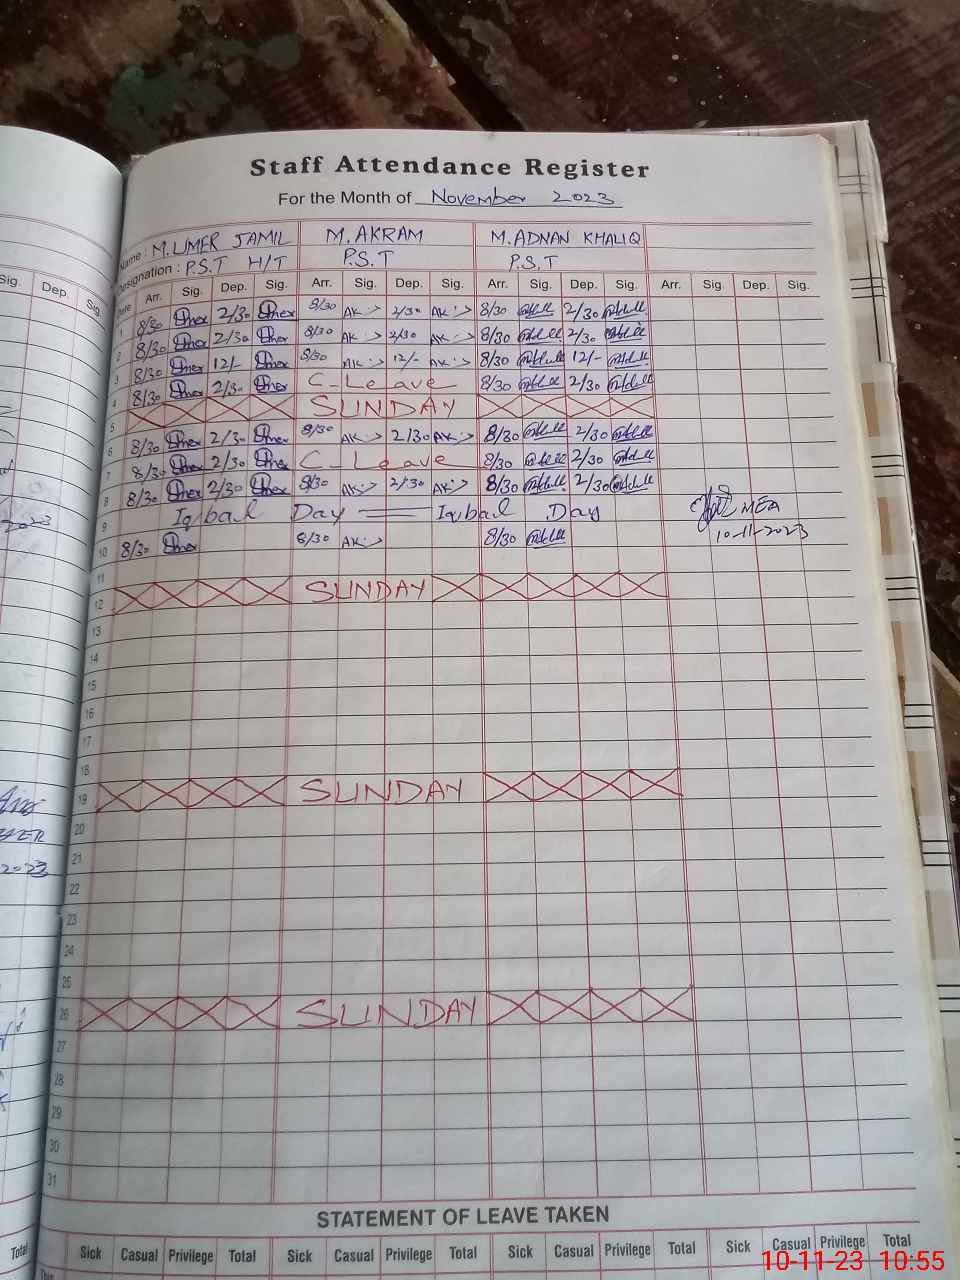 Staff Attendance Register
For the Month of November 2023
Name : M. UMER JAMIL M. AKRAM M. ADNAN KHALIQ
Designation : P.S.T H/T P.S.T P.S.T
Date Arr. Sig. Dep. Sig. Arr. Sig. Dep. Sig. Arr. Sig. Dep. Sig. Arr. Sig. Dep. Sig.
1 8/30 Umer 2/30 Umer 8/30 AK 2/30 AK 8/30 2/30
2 8/30 Umer 2/30 Umer 8/30 AK 2/30 AK 8/30 2/30
3 8/30 Umer 12/- Umer 8/30 AK 12/- AK 8/30 12/-
4 8/30 Umer 2/30 Umer C-Leave 8/30 2/30
5 SUNDAY
6 8/30 Umer 2/30 Umer 8/30 AK 2/30 AK 8/30 2/30
7 8/30 Umer 2/30 Umer C-Leave 8/30 2/30
8 8/30 Umer 2/30 Umer 8/30 AK 2/30 AK 8/30 2/30
9 Iqbal Day Iqbal Day MEA
10 8/30 Umer 8/30 AK 8/30 10-11-2023
11
12 SUNDAY
13
14
15
16
17
18
19 SUNDAY
20
21
22
23
24
25
26 SUNDAY
27
28
29
30
31
STATEMENT OF LEAVE TAKEN
Sick Casual Privilege Total Sick Casual Privilege Total Sick Casual Privilege Total Sick Casual Privilege Total
This
Sig. Dep. Sig.
2023
2023
Total
10-11-23 10:55